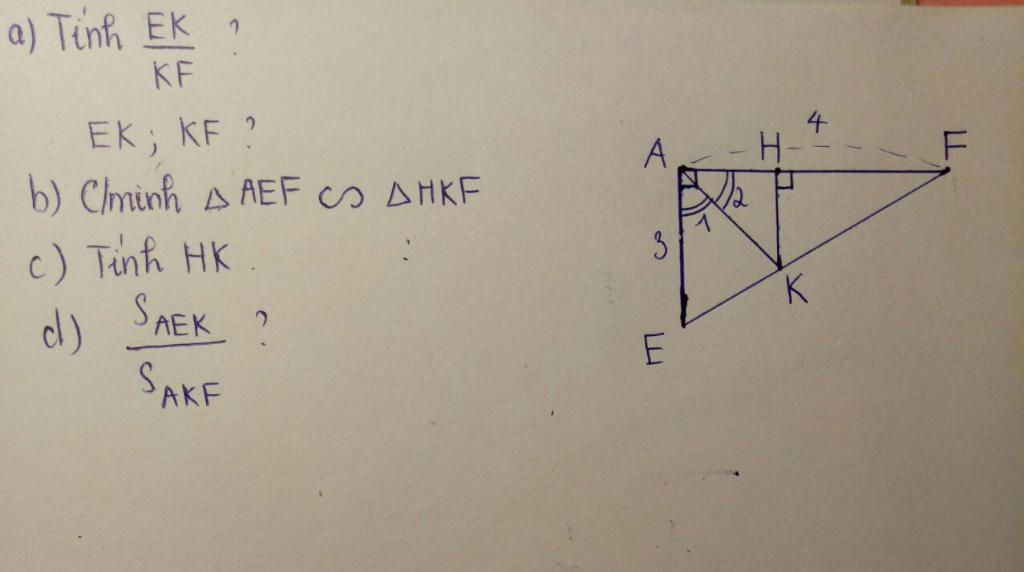 a) Tính EK ?
KF
EK; KF ?
b) C/minh △ AEF ∽ △ HKF
c) Tính HK.
d) S AEK ?
S AKF
4
A H F
1 2
3
K
E